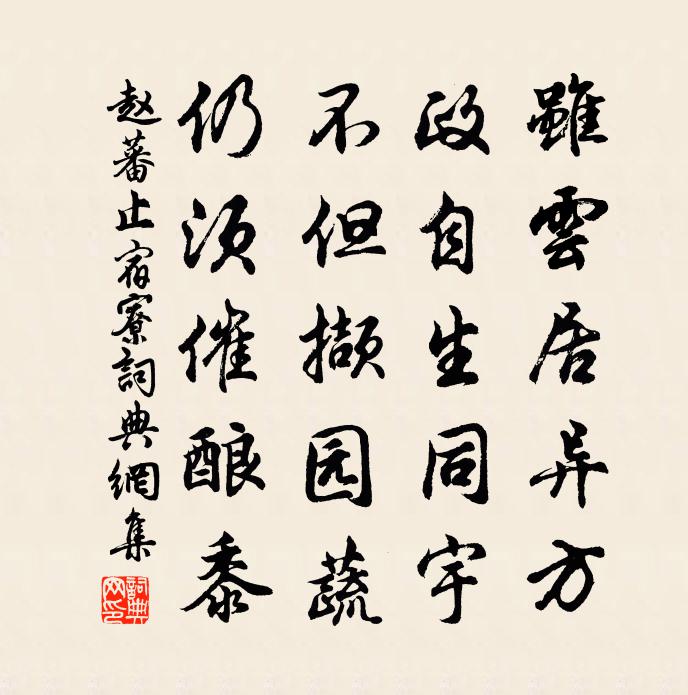 雖雲居异方
政自生同宇
不但擷园蔬
仍须催酿黍
赵蕃止宿寮詞典網集
詞典網印